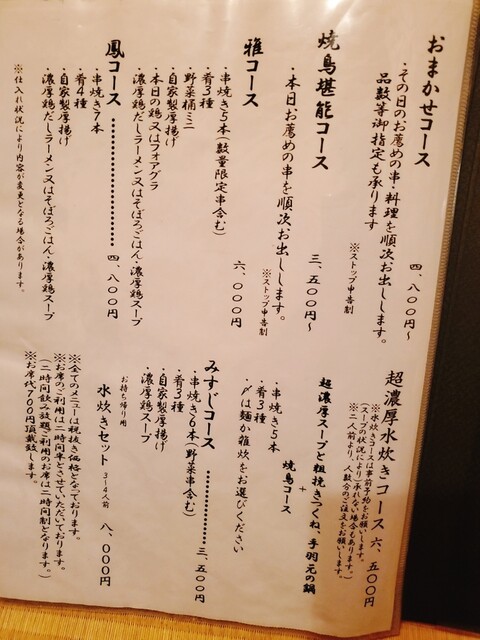 おまかせコース
・その日のお薦めの串・料理を順次お出しします。
品数等御指定も承ります
四、八〇〇円～
※ストップ申告制
焼鳥堪能コース
・本日お薦めの串を順次お出しします。
三、五〇〇円～
※ストップ申告制
雅コース
六、〇〇〇円
・串焼き5本(数量限定串含む)
・肴3種
・野菜桶ミニ
・自家製厚揚げ
・本日の鶏又はフォアグラ
・濃厚鶏だしラーメン又はそぼろごはん・濃厚鶏スープ
鳳コース
四、八〇〇円
・串焼き7本
・肴4種
・自家製厚揚げ
・濃厚鶏だしラーメン又はそぼろごはん・濃厚鶏スープ
※仕入れ状況により内容が変更となる場合があります。
超濃厚水炊きコース 六、五〇〇円
※水炊きコースは事前予約をお願いします。
(スープの状況により承れない場合もあります。)
※二人前より、人数分のご注文をお願いします。
超濃厚スープと粗挽きつくね、手羽元の鍋
+
焼鳥コース
・串焼き5本
・肴3種
・〆は麺か雑炊をお選びください
みすじコース
三、五〇〇円
・串焼き6本(野菜串含む)
・肴3種
・自家製厚揚げ
・濃厚鶏スープ
お持ち帰り用
水炊きセット 3~4人前 八、〇〇〇円
※全てのメニューは税抜き価格となっております。
※お席のご利用は二時間半とさせていただいております。
(二時間飲み放題ご利用のお席は二時間制となります。)
※お席代700円頂戴致します。